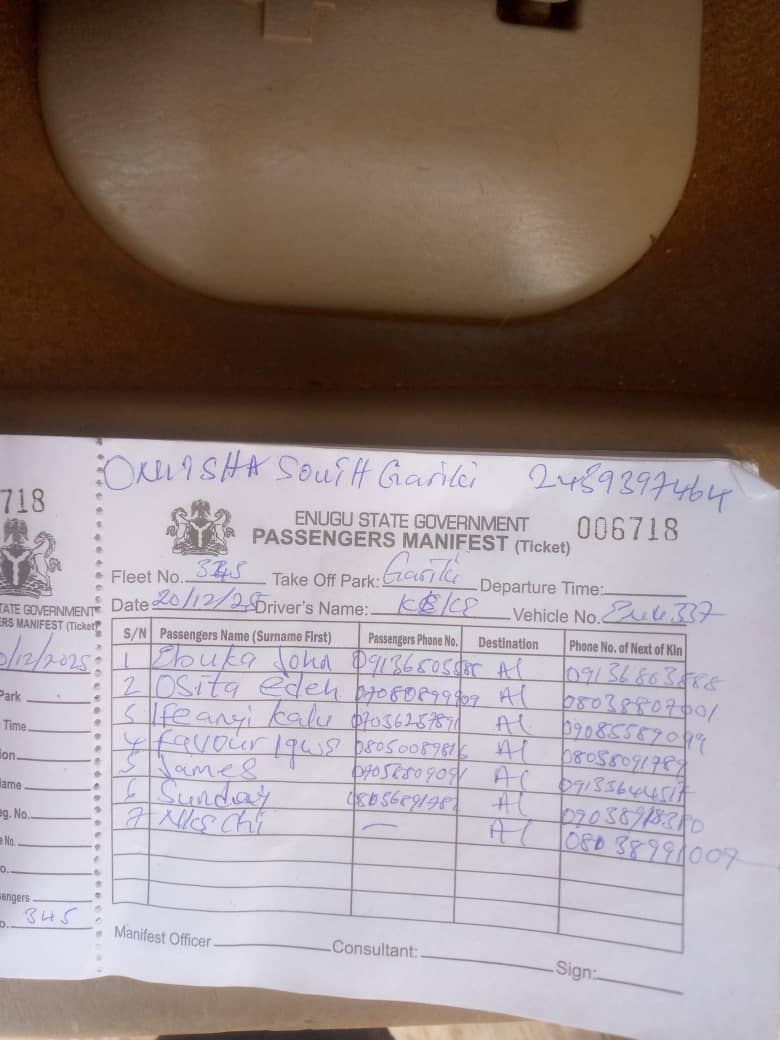 ONITSHA South Gariki 2439397464
718
ENUGU STATE GOVERNMENT
006718
PASSENGERS MANIFEST (Ticket)
Fleet No. 345 Take Off Park: Gariki Departure Time:
Date 20/12/25 Driver's Name: Vehicle No. 337
S/N Passengers Name (Surname First) Passengers Phone No. Destination Phone No. of Next of Kin
1 Ebuka John Al
2 Osita edeh Al
3 Ifeanyi kalu 07036257891 Al 09085587099
4 favour Igwe 08050089816 Al 08058091789
5 James Al 09135644517
6 Sunday 08056891782 Al
7 Nkechi — Al 08038991007
Manifest Officer Consultant: Sign:
TATE GOVERNMENT
ERS MANIFEST (Ticket)
0/12/2025
Park
Time
ion
ame
eg. No.
e No.
o.
sengers
o. 345